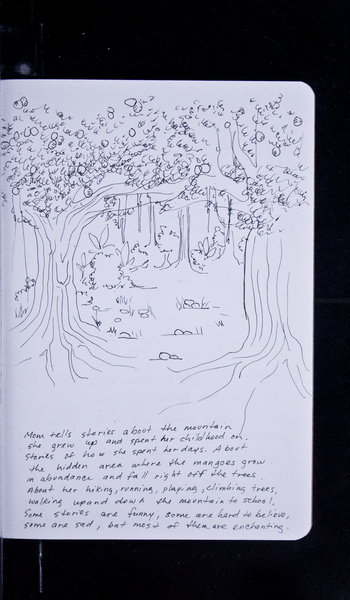 Mom tells stories about the mountain
she grew up and spent her childhood on.
Stories of how she spent her days. About
the hidden area where the mangoes grow
in abundance and fall right off the trees.
About her hiking, running, playing, climbing trees,
walking up and down the mountain to school,
Some stories are funny, some are hard to believe,
some are sad, but most of them are enchanting.